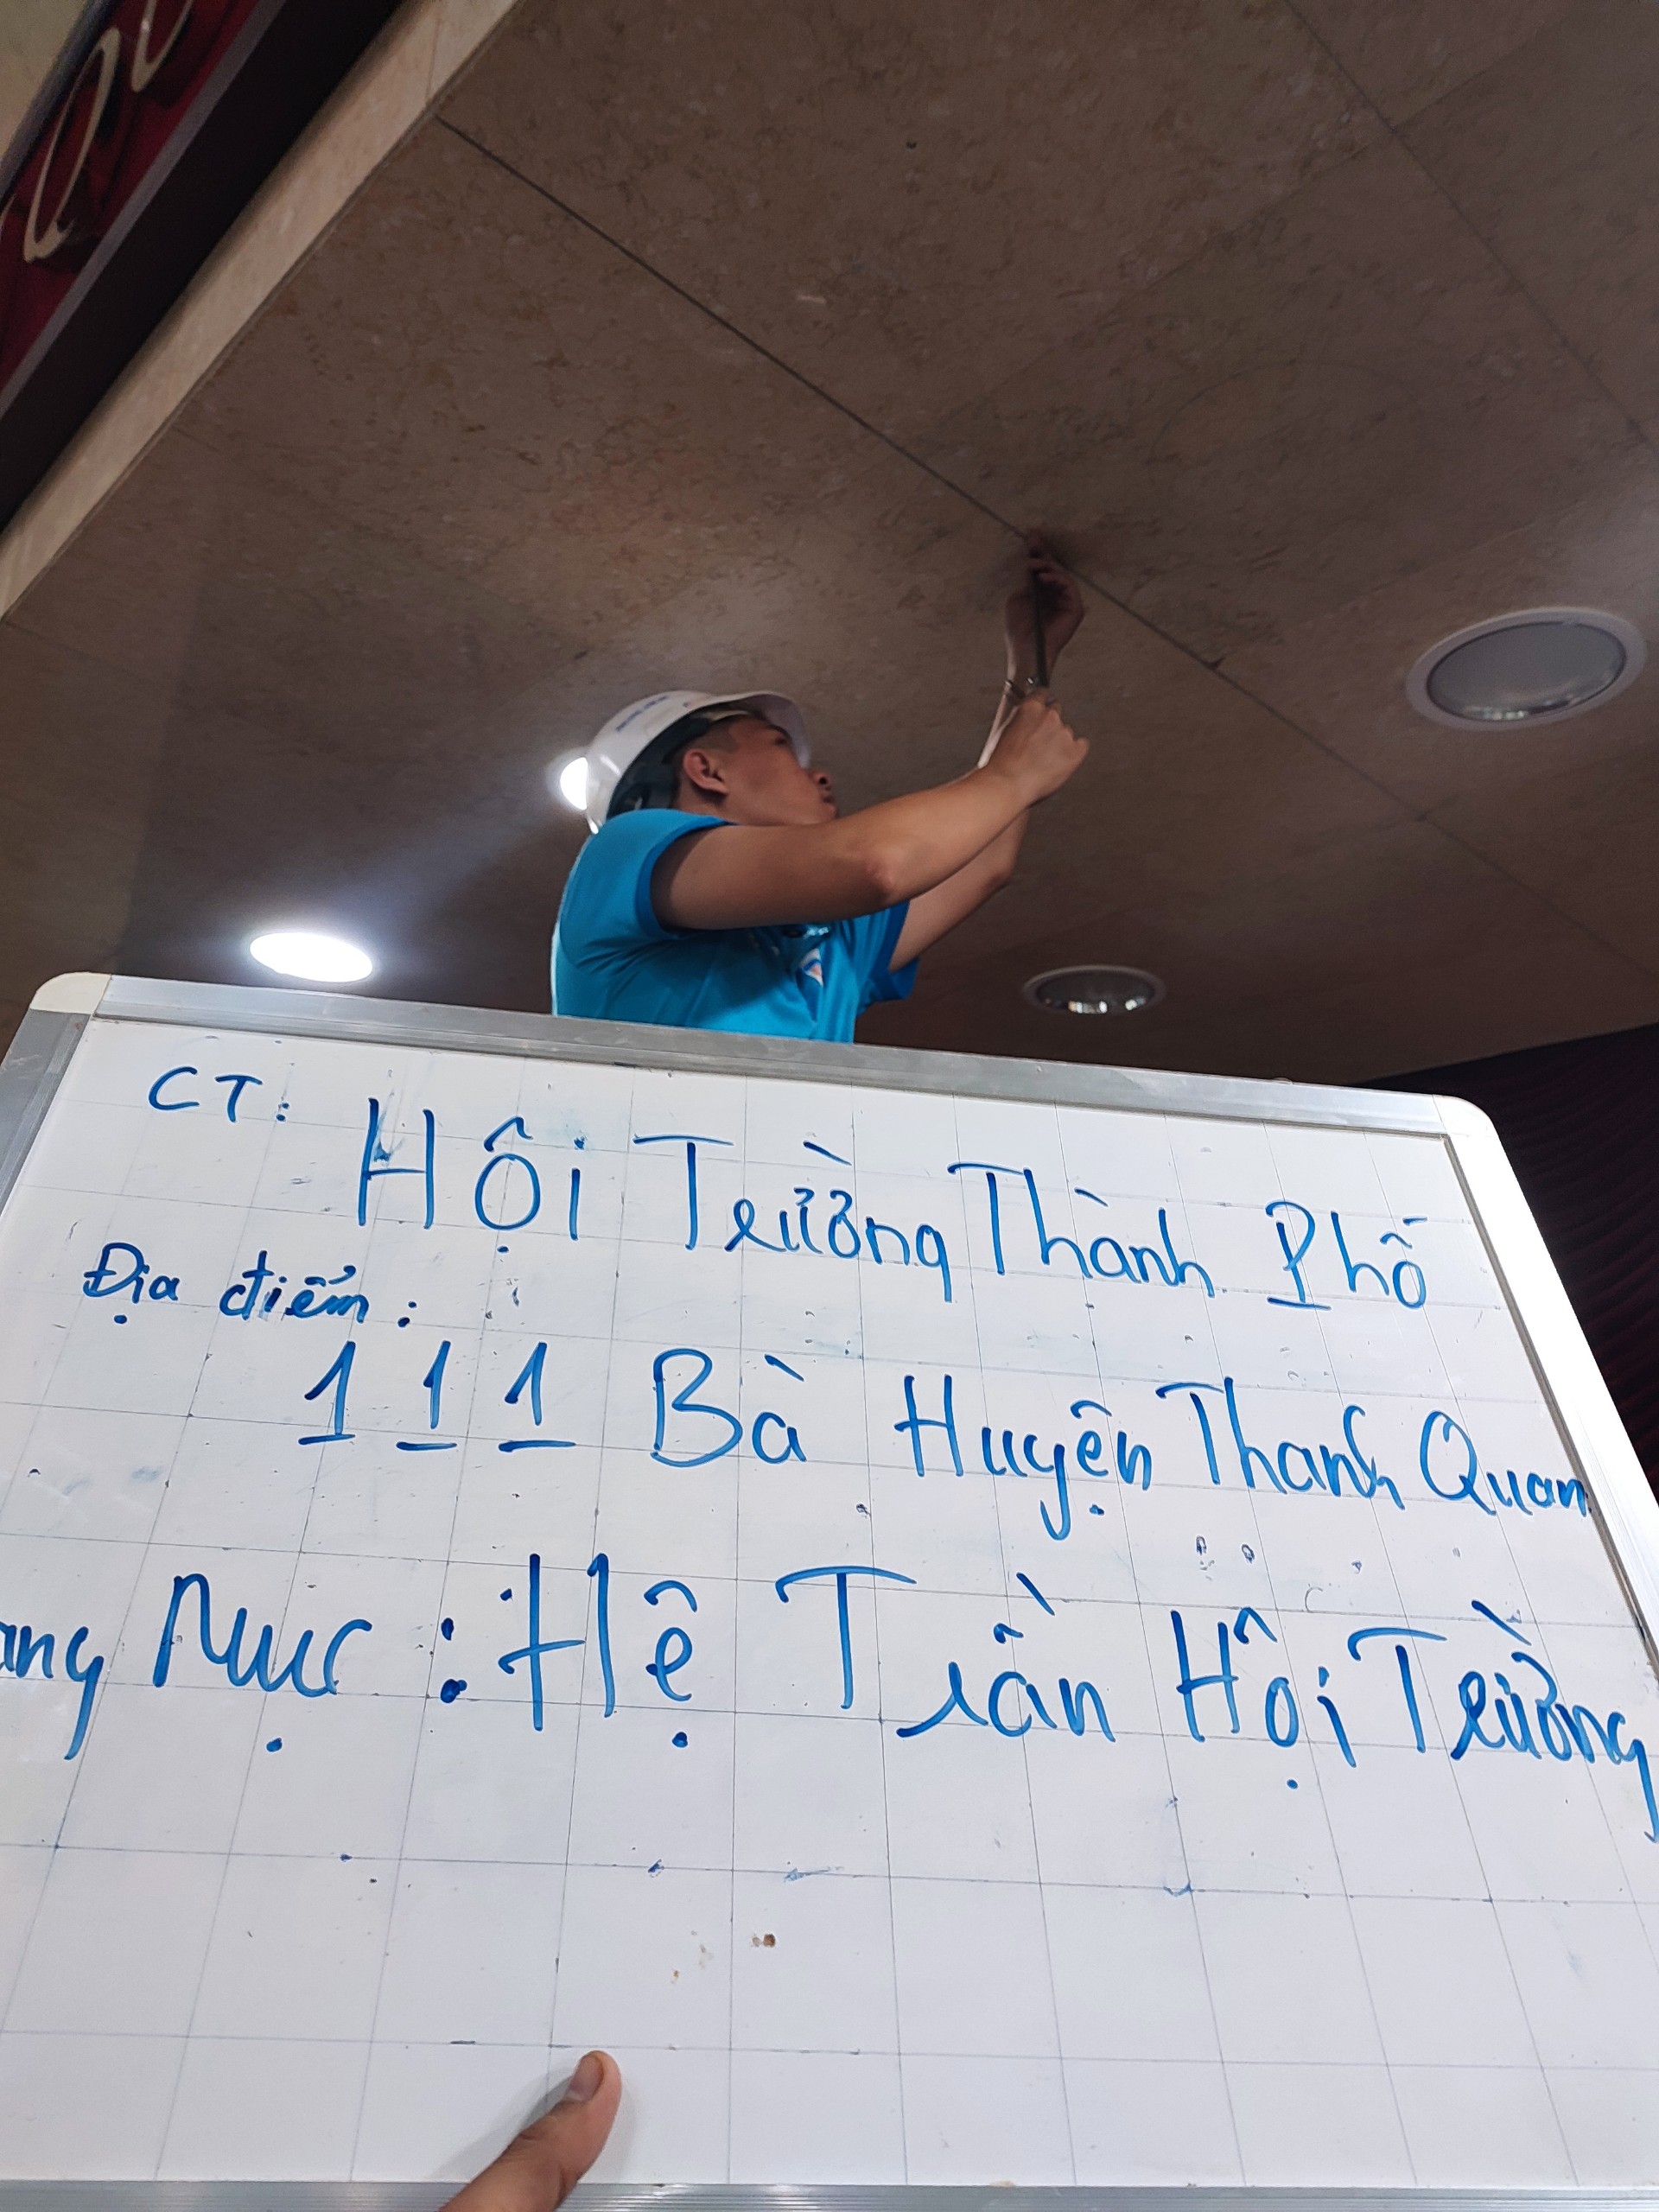 CT: Hội Trường Thành Phố
Địa điểm:
111 Bà Huyện Thanh Quan
ang Mục: Hệ Trần Hội Trường